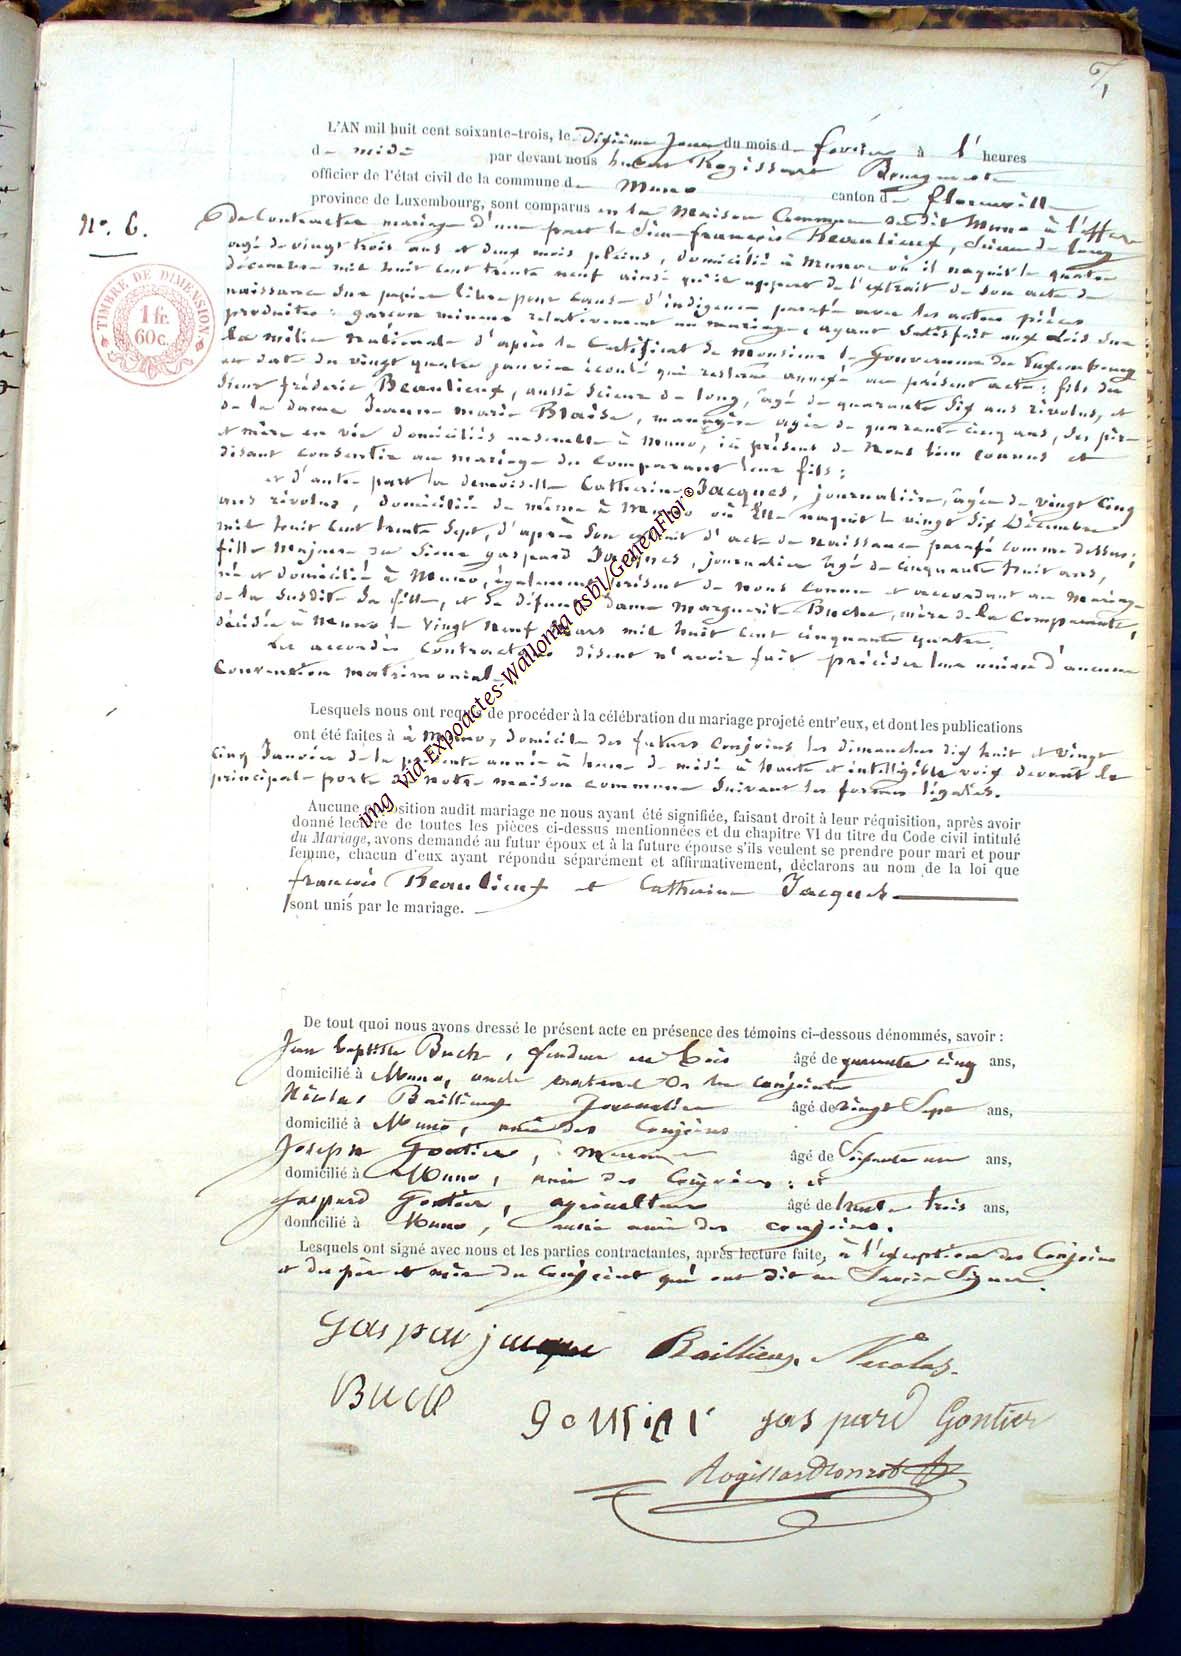 6/1
L'AN mil huit cent soixante-trois, le dixième jour du mois de février à l' heures
de midi par devant nous hubert Rogissart Bourgmestre
officier de l'état civil de la commune de Muno canton de florenville
province de Luxembourg, sont comparus en la Maison Commune dudit Muno à l'effet
No. 6.
de Contracter mariage d'une part le Sieur françois Beaulieux, Scieur de long
agé de vingt trois ans et deux mois pleins, domicilié à Muno où il naquit le quatre
décembre mil huit cent trente neuf ainsi qu'il appert de l'extrait de son acte de
naissance Sur papier libre pour cause d'indigence parafé avec les autres pièces
produites : garçon mineur relativement au mariage, ayant Satisfait aux Lois Sur
la milice Nationale d'après le Certificat de Monsieur le Gouverneur du Luxembourg
en date du vingt quatre janvier écoulé qui restera annexé au présent acte : fils du
Sieur fréderic Beaulieux, aussi Scieur de long, âgé de quarante Six ans révolus, et
de la dame Jeanne Marie Blaise, ménagère agée de quarante cinq ans, Ses père
et mère en vie domiciliés ensemble à Muno, ici présens de Nous bien connus et
disant consentir au mariage du Comparant leur fils ;
et d'autre part la demoiselle Catherine Jacques, journalière, âgée de vingt Cinq
ans révolus, domiciliée de même à Muno où Elle naquit le vingt Six Décembre
mil huit Cent trente Sept, d'après Son extrait d'acte de Naissance parafé comme dessus ;
fille Majeure du Sieur gaspard Jacques, journalier âgé de cinquante huit ans,
né et domicilié à Muno, également présent de Nous connu et accordant au Mariage
de la Susdite Sa fille, et de défunte dame Marguerite Buche, mère de la Comparante,
décédée à Muno le Vingt Neuf Mars mil huit cent cinquante quatre.
Les accordés Contractans disent n'avoir fait précéder leur union d'aucune
Convention matrimoniale.
Lesquels nous ont requis de procéder à la célébration du mariage projeté entr'eux, et dont les publications
ont été faites à à Muno, domicile des futurs Conjoins les dimanches dix huit et vingt
cinq Janvier de la présente année à heure de midi à haute et intelligible voix devant la
principale porte de notre maison commune Suivant les formes légales.
Aucune opposition audit mariage ne nous ayant été signifiée, faisant droit à leur réquisition, après avoir
donné lecture de toutes les pièces ci-dessus mentionnées et du chapitre VI du titre du Code civil intitulé
du Mariage, avons demandé au futur époux et à la future épouse s'ils veulent se prendre pour mari et pour
femme, chacun d'eux ayant répondu séparément et affirmativement, déclarons au nom de la loi que
françois Beaulieux et Catherine Jacques
sont unis par le mariage.
De tout quoi nous avons dressé le présent acte en présence des témoins ci-dessous dénommés, savoir :
Jean baptiste Buch, fendeur en bois âgé de quarante cinq ans,
domicilié à Muno, oncle maternel de la conjointe
Nicolas Baillieux Journalier âgé de vingt Sept ans,
domicilié à Muno, ami des Conjoins
Joseph Gontier, âgé de ans,
domicilié à Muno, ami des Conjoins : et
gaspard Gontier, agriculteur âgé de trente trois ans,
domicilié à Muno, aussi ami des conjoins.
Lesquels ont signé avec nous et les parties contractantes, après lecture faite, à l'exception des Conjoins
et des père et mère du Conjoint qui ont dit ne Savoir Signer.
gaspar jacque Baillieux Nicolas
Buch gontier gaspard Gontier
Rogissart
TIMBRE DE DIMENSION
1 fr.
60 c.
img via-Expoactes-Wallonia asbl/GeneaFlor©